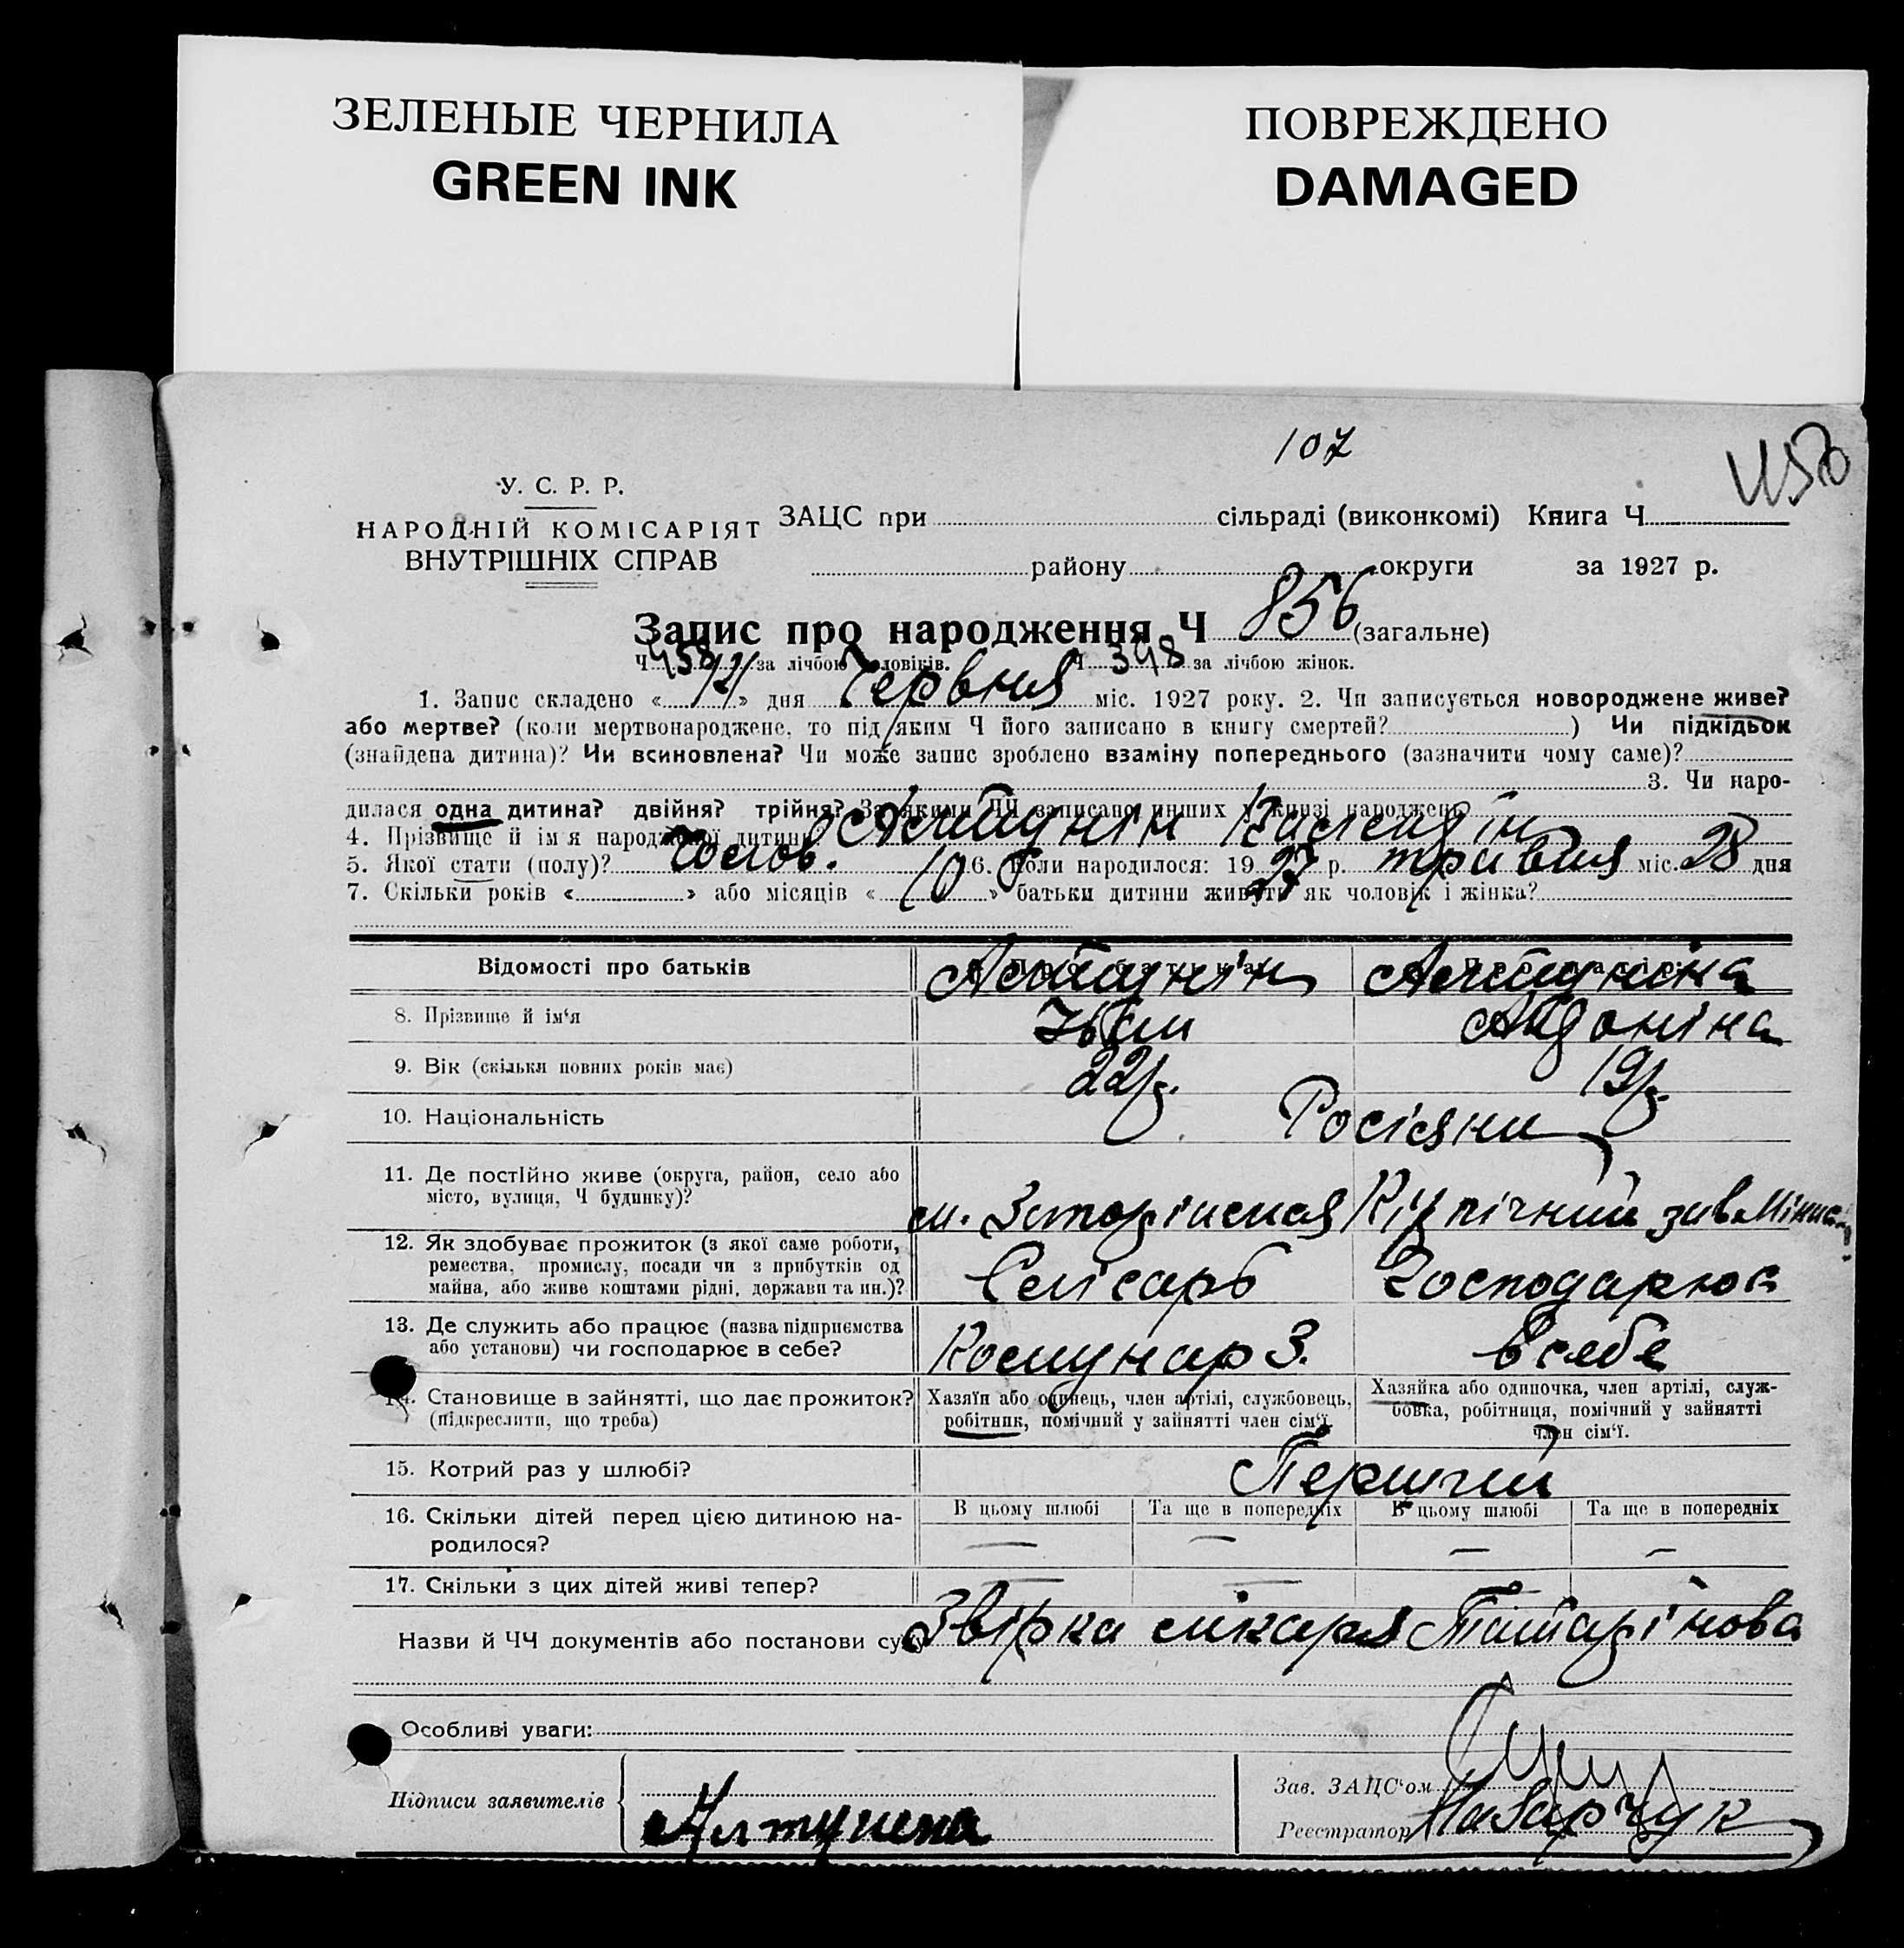 ЗЕЛЕНЫЕ ЧЕРНИЛА
GREEN INK
ПОВРЕЖДЕНО
DAMAGED
107
У. С. Р. Р.
НАРОДНІЙ КОМІСАРІЯТ
ВНУТРІШНІХ СПРАВ
ЗАЦС при сільраді (виконкомі) Книга Ч.
району округи за 1927 р.
Запис про народження Ч 856 (загальне)
Ч 458 за лічбою чоловіків. Ч 398 за лічбою жінок.
1. Запис складено « » дня Червня міс. 1927 року. 2. Чи записується новороджене живе?
або мертве? (коли мертвонароджене, то під яким Ч його записано в книгу смертей? ) Чи підкідьок
(знайдена дитина)? Чи всиновлена? Чи може запис зроблено взаміну попереднього (зазначити чому саме)?
3. Чи наро-
дилася одна дитина? двійня? трійня? За якими ЧЧ записано инших у книзі народжень
4. Прізвище й ім'я народженої дитини
5. Якої стати (полу)? Чолов. 6. Коли народилося: 1927 р. травня міс. 28 дня
7. Скільки років « » або місяців « 10 » батьки дитини живуть як чоловік і жінка?
Відомості про батьків
8. Прізвище й ім'я
9. Вік (скільки повних років має) 22 р. 19 р.
10. Національність Росіяни
11. Де постійно живе (округа, район, село або
місто, вулиця, Ч будинку)?
12. Як здобуває прожиток (з якої саме роботи,
ремества, промислу, посади чи з прибутків од
майна, або живе коштами рідні, держави та ин.)? Слісарь Господарює
13. Де служить або працює (назва підприємства
або установи) чи господарює в себе? Комунар З. в себе
14. Становище в зайнятті, що дає прожиток?
(підкреслити, що треба)
Хазяїн або одинець, член артілі, службовець,
робітник, помічний у зайнятті член сім'ї.
Хазяйка або одиночка, член артілі, служ-
бовка, робітниця, помічний у зайнятті
член сім'ї.
15. Котрий раз у шлюбі? Перший
16. Скільки дітей перед цією дитиною на-
родилося?
В цьому шлюбі Та ще в попередніх В цьому шлюбі Та ще в попередніх
17. Скільки з цих дітей живі тепер?
Назви й ЧЧ документів або постанови суду Звірка лікаря Татарінова
Особливі уваги:
Підписи заявителів
Зав. ЗАЦС'ом
Реєстратор Назарчук